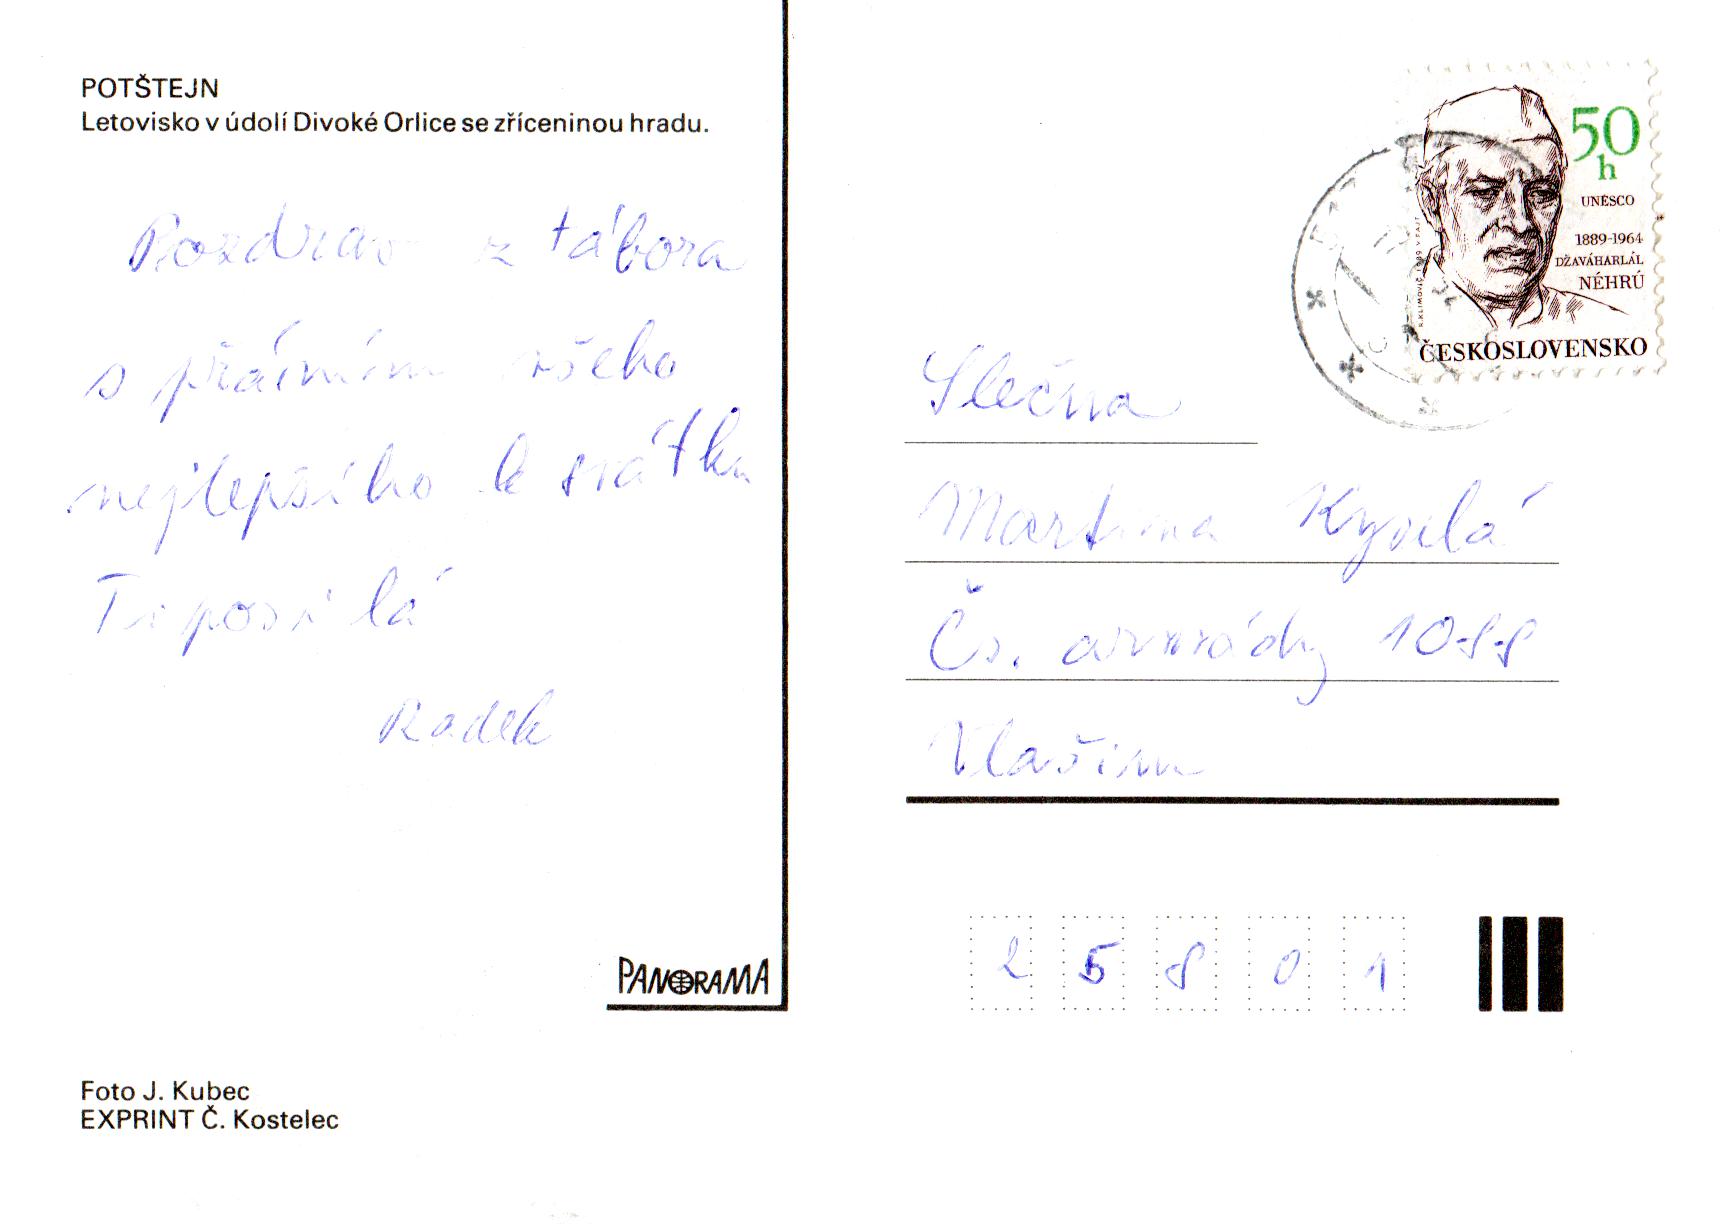 POTŠTEJN
Letovisko v údolí Divoké Orlice se zříceninou hradu.
Pozdrav z tábora
s přáním všeho
nejlepšího k svátku
Ti posílá
Radek
PANORAMA
Foto J. Kubec
EXPRINT Č. Kostelec
50
h
UNESCO
1889-1964
DŽAVÁHARLÁL
NÉHRÚ
ČESKOSLOVENSKO
Slečna
Martina Kyselá
Čs. armády 1088
Vlašim
2 5 8 0 1